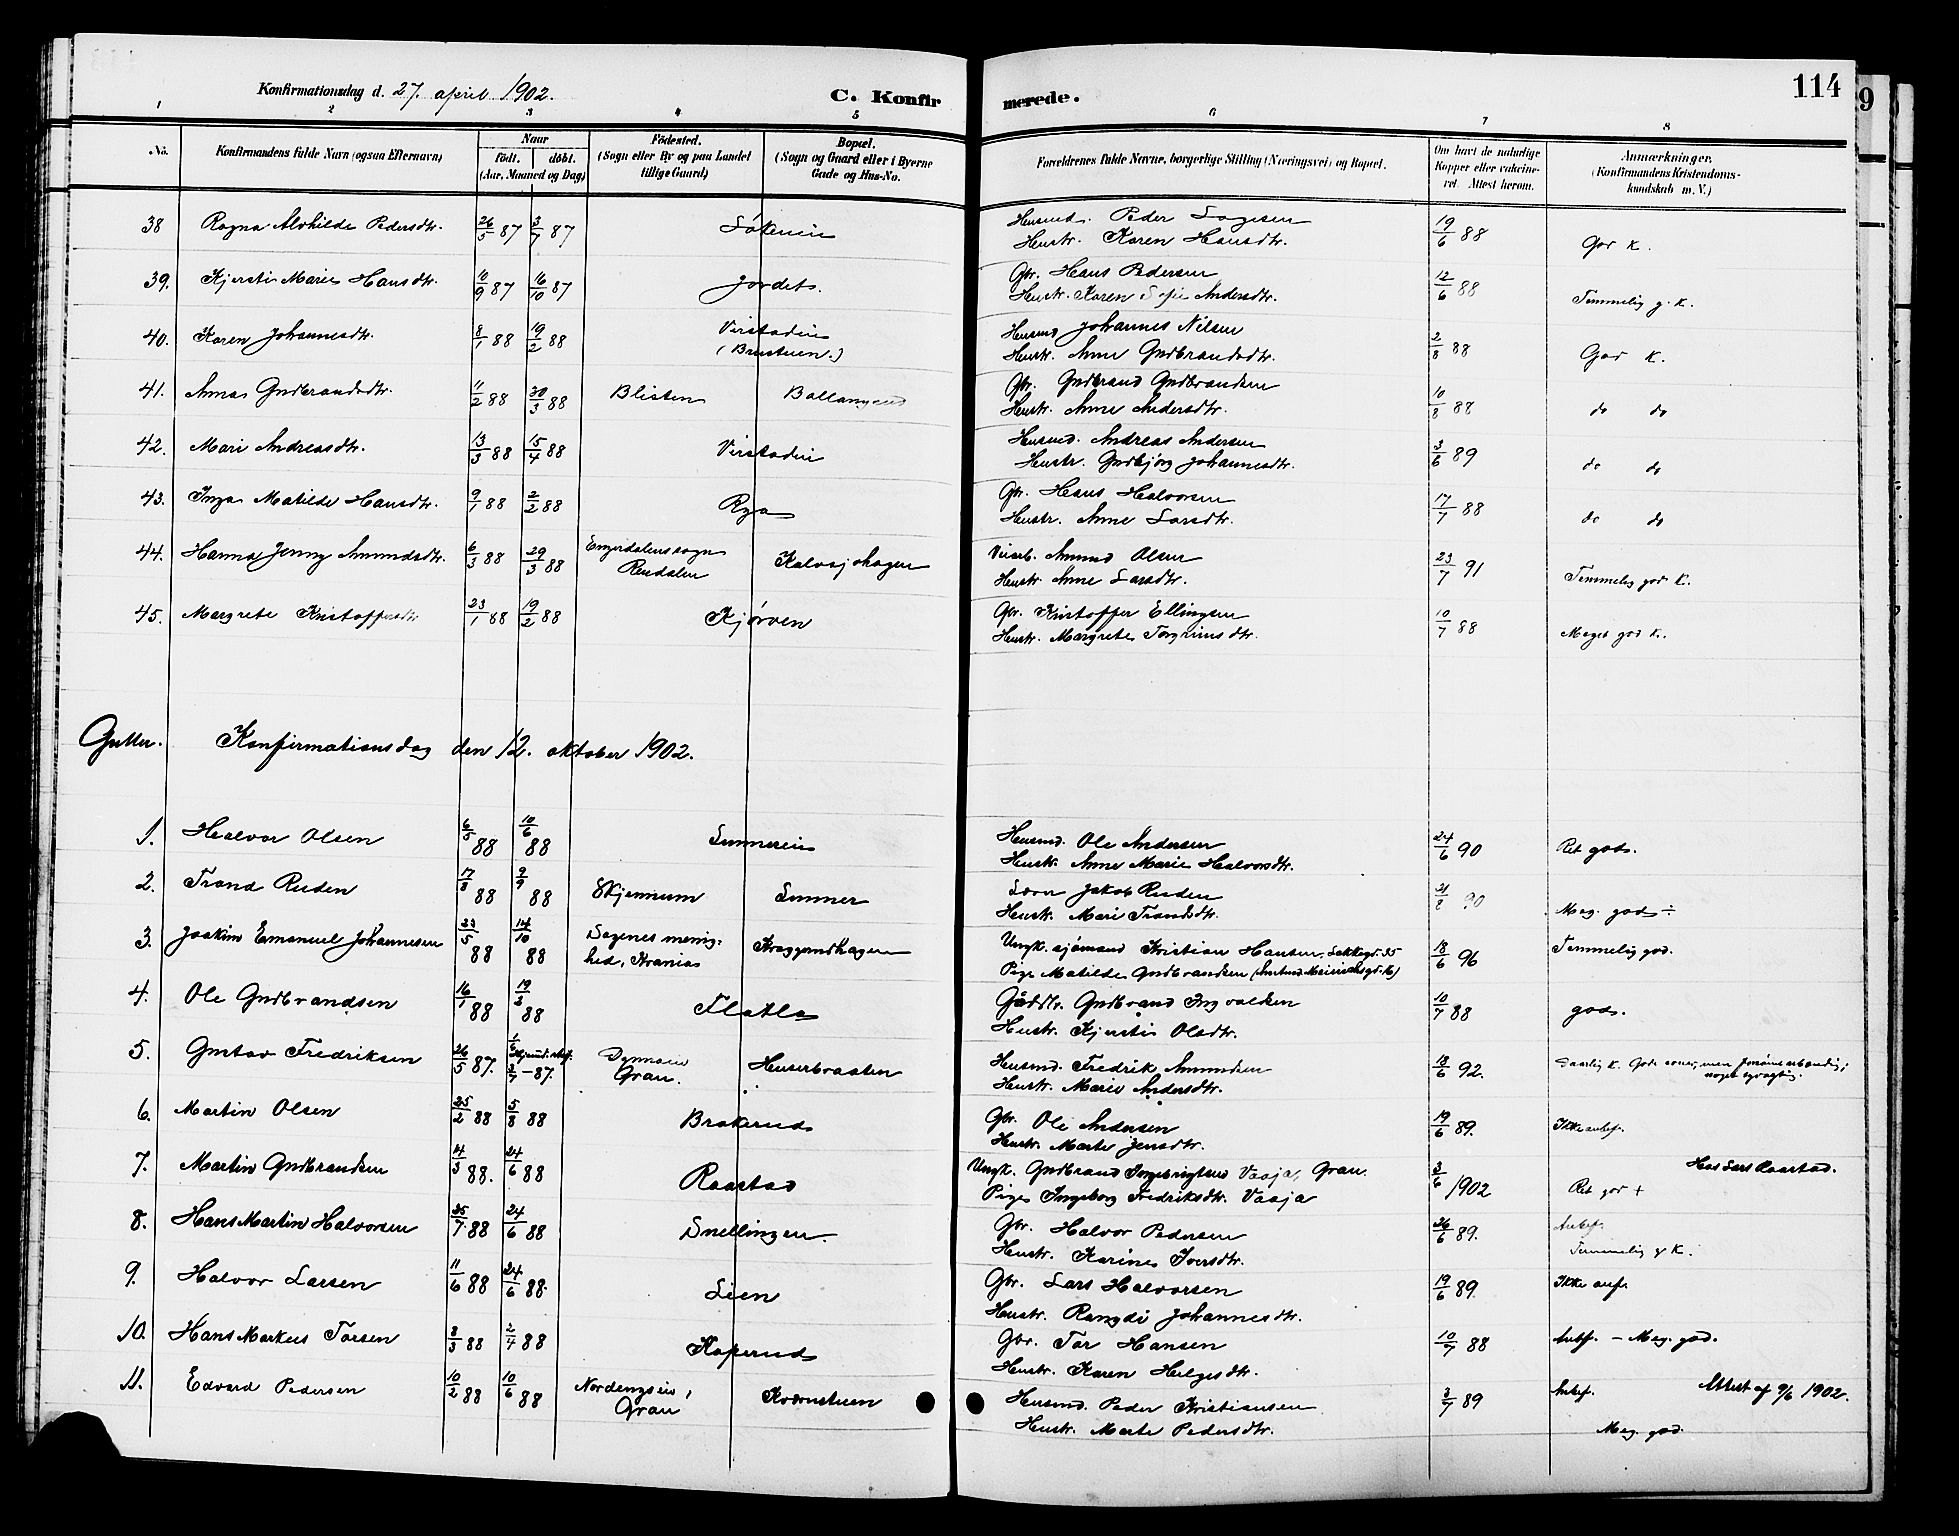 Konfirmationsdag d. 27. april 1902.
C. Konfirmerede.
114
1 2 3 4 5 6 7 8
No. Konfirmandens fulde Navn (ogsaa Efternavn) Naar födt. döbt. (Aar, Maaned og Dag) Födested. (Sogn eller By og paa Landet tillige Gaard) Bopæl. (Sogn og Gaard eller i Byerne Gade og Hus-No. Forældrenes fulde Navne, borgerlige Stilling (Næringsvei) og Bopæl. Om havt de naturlige Kopper eller vakcineret. Attest herom. Anmærkninger. (Konfirmandens Kristendomskundskab m. V.)
38 Ragna Alvhilde Pedersdtr. 26/5 87 3/7 87 Husmd. Peder 19/6 88
Hustr. Karen Hansdtr. God K.
39. Kjersti Marie Hansdtr. 10/9 87 16/10 87 Jordet. Gbr. Hans Pedersen 12/6 88
Hustr. Karen Sofie Andersdtr. Temmelig g. K.
40. Karen Johannesdtr. 8/1 88 19/2 88 Virstadeie Husmd Johannes Nilsen 2/8 88
(Brustuen.) Hustr. Anne Gudbrandsdtr. God K.
41. Anna Gudbrandsdtr. 11/2 88 30/3 88 Blisten Ballangrud Gbr. Gudbrand Gudbrandsen 10/8 88
Hustr. Anne Andersdtr. do do
42. Mari Andreasdtr. 13/3 88 15/4 88 Virstadeie Husmd. Andreas Andersen 3/6 89
Hustr. Gudbjør Johannesdtr. do do
43. Inga Matilde Hansdtr. 9/1 88 2/2 88 Rya Gbr. Hans Halvorsen 17/7 88
Hustr. Anne Larsdtr. do do
44. Hanna Jenny Amundsdtr. 6/3 88 29/3 88 Engerdalens sogn Kalvsjøhagen Amund Olsen 23/7 91
Rendalen Hustr. Anne Larsdtr. Temmelig god K.
45. Margrete Kristoffersdtr 23/1 88 19/2 88 Kjørven Gbr. Kristoffer Ellingsen 10/7 88
Hustr. Margrete Torgrimsdtr. Meget god K.
Gutter. Konfirmationsdag den 12. oktober 1902.
1. Halvor Olsen 6/5 88 10/6 88 Sunnereie Husmd. Ole Andersen 24/6 90 Ret god.
Hustr. Anne Marie Halvorsdtr.
2. Trond Ruden 17/8 88 9/9 88 Skjennum Sunner Jakob Ruden
Hustr. Mari Trondsdtr. Meg. god ÷
3. Joakim Emanuel Johannesen 23/5 88 14/10 88 Sagenes menighed, Krania Kraggerudhagen Ungk. sjømand Kristian Hansen, 18/6 96 Temmelig god.
Pige Matilde Gudbrandsen
4. Ole Gudbrandsen 16/1 88 19/2 88 Flatla Gudbrand Ingvaldsen 10/7 88 god.
Hustr. Kjersti Olsdtr.
5. Gustav Fredriksen 26/5 87. 3/7 - 87. Gran. Huserbraaten Husmd. Fredrik Amundsen 18/6 92. Daarlig K.
Hustr. Marie Andersdtr.
6. Martin Olsen 25/2 88 5/8 88 Brakerud Gbr. Ole Andersen 19/6 89. Ikke anbef.
Hustr. Marte Jensdtr.
7. Martin Gudbrandsen 4/3 88. 24/6 88 Raastad Ungk. Gudbrand Ingebrigtsen Vaaja, Gran. 3/6 1902 Hos Lars Raastad.
Pige Ingeborg Fredriksdtr. Vaaja Ret god +
8. Hans Martin Halvorsen 25/7 88 24/6 88 Snellingen. Gbr. Halvor Pedersen 26/6 89. Anbef.
Hustr. Karine Iversdtr. Temmelig g K.
9. Halvor Larsen 11/6 88 24/6 88. Lien Gbr. Lars Halvorsen 19/6 89. Ikke anf.
Hustr. Rangdi Johannesdtr.
10. Hans Markus Torsen 8/3 88 2/4 88 Koperud Gbr. Tor Hansen 10/7 88 Anbf. - Meg. god.
Hustr. Karen Helgesdtr.
11. Edvard Pedersen 10/2 88 10/6 88 Nordengseie, Gran Kvernstuen Husmd. Peder Kristiansen 3/7 89 Anbef. Attest af 9/6 1902.
Hustr. Marte Pedersdtr. Meg. god.